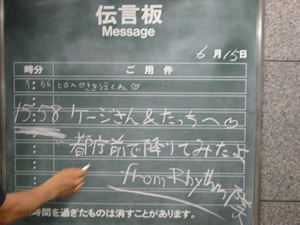 伝言板
Message
6月15日
時分 ご用件
7:56 ヒロへ 先き行くね♡
15:58 ケージさん&たっちへ♡
都庁前で降りてみたよ
from Rhythm
時間を過ぎたものは消すことがあります。